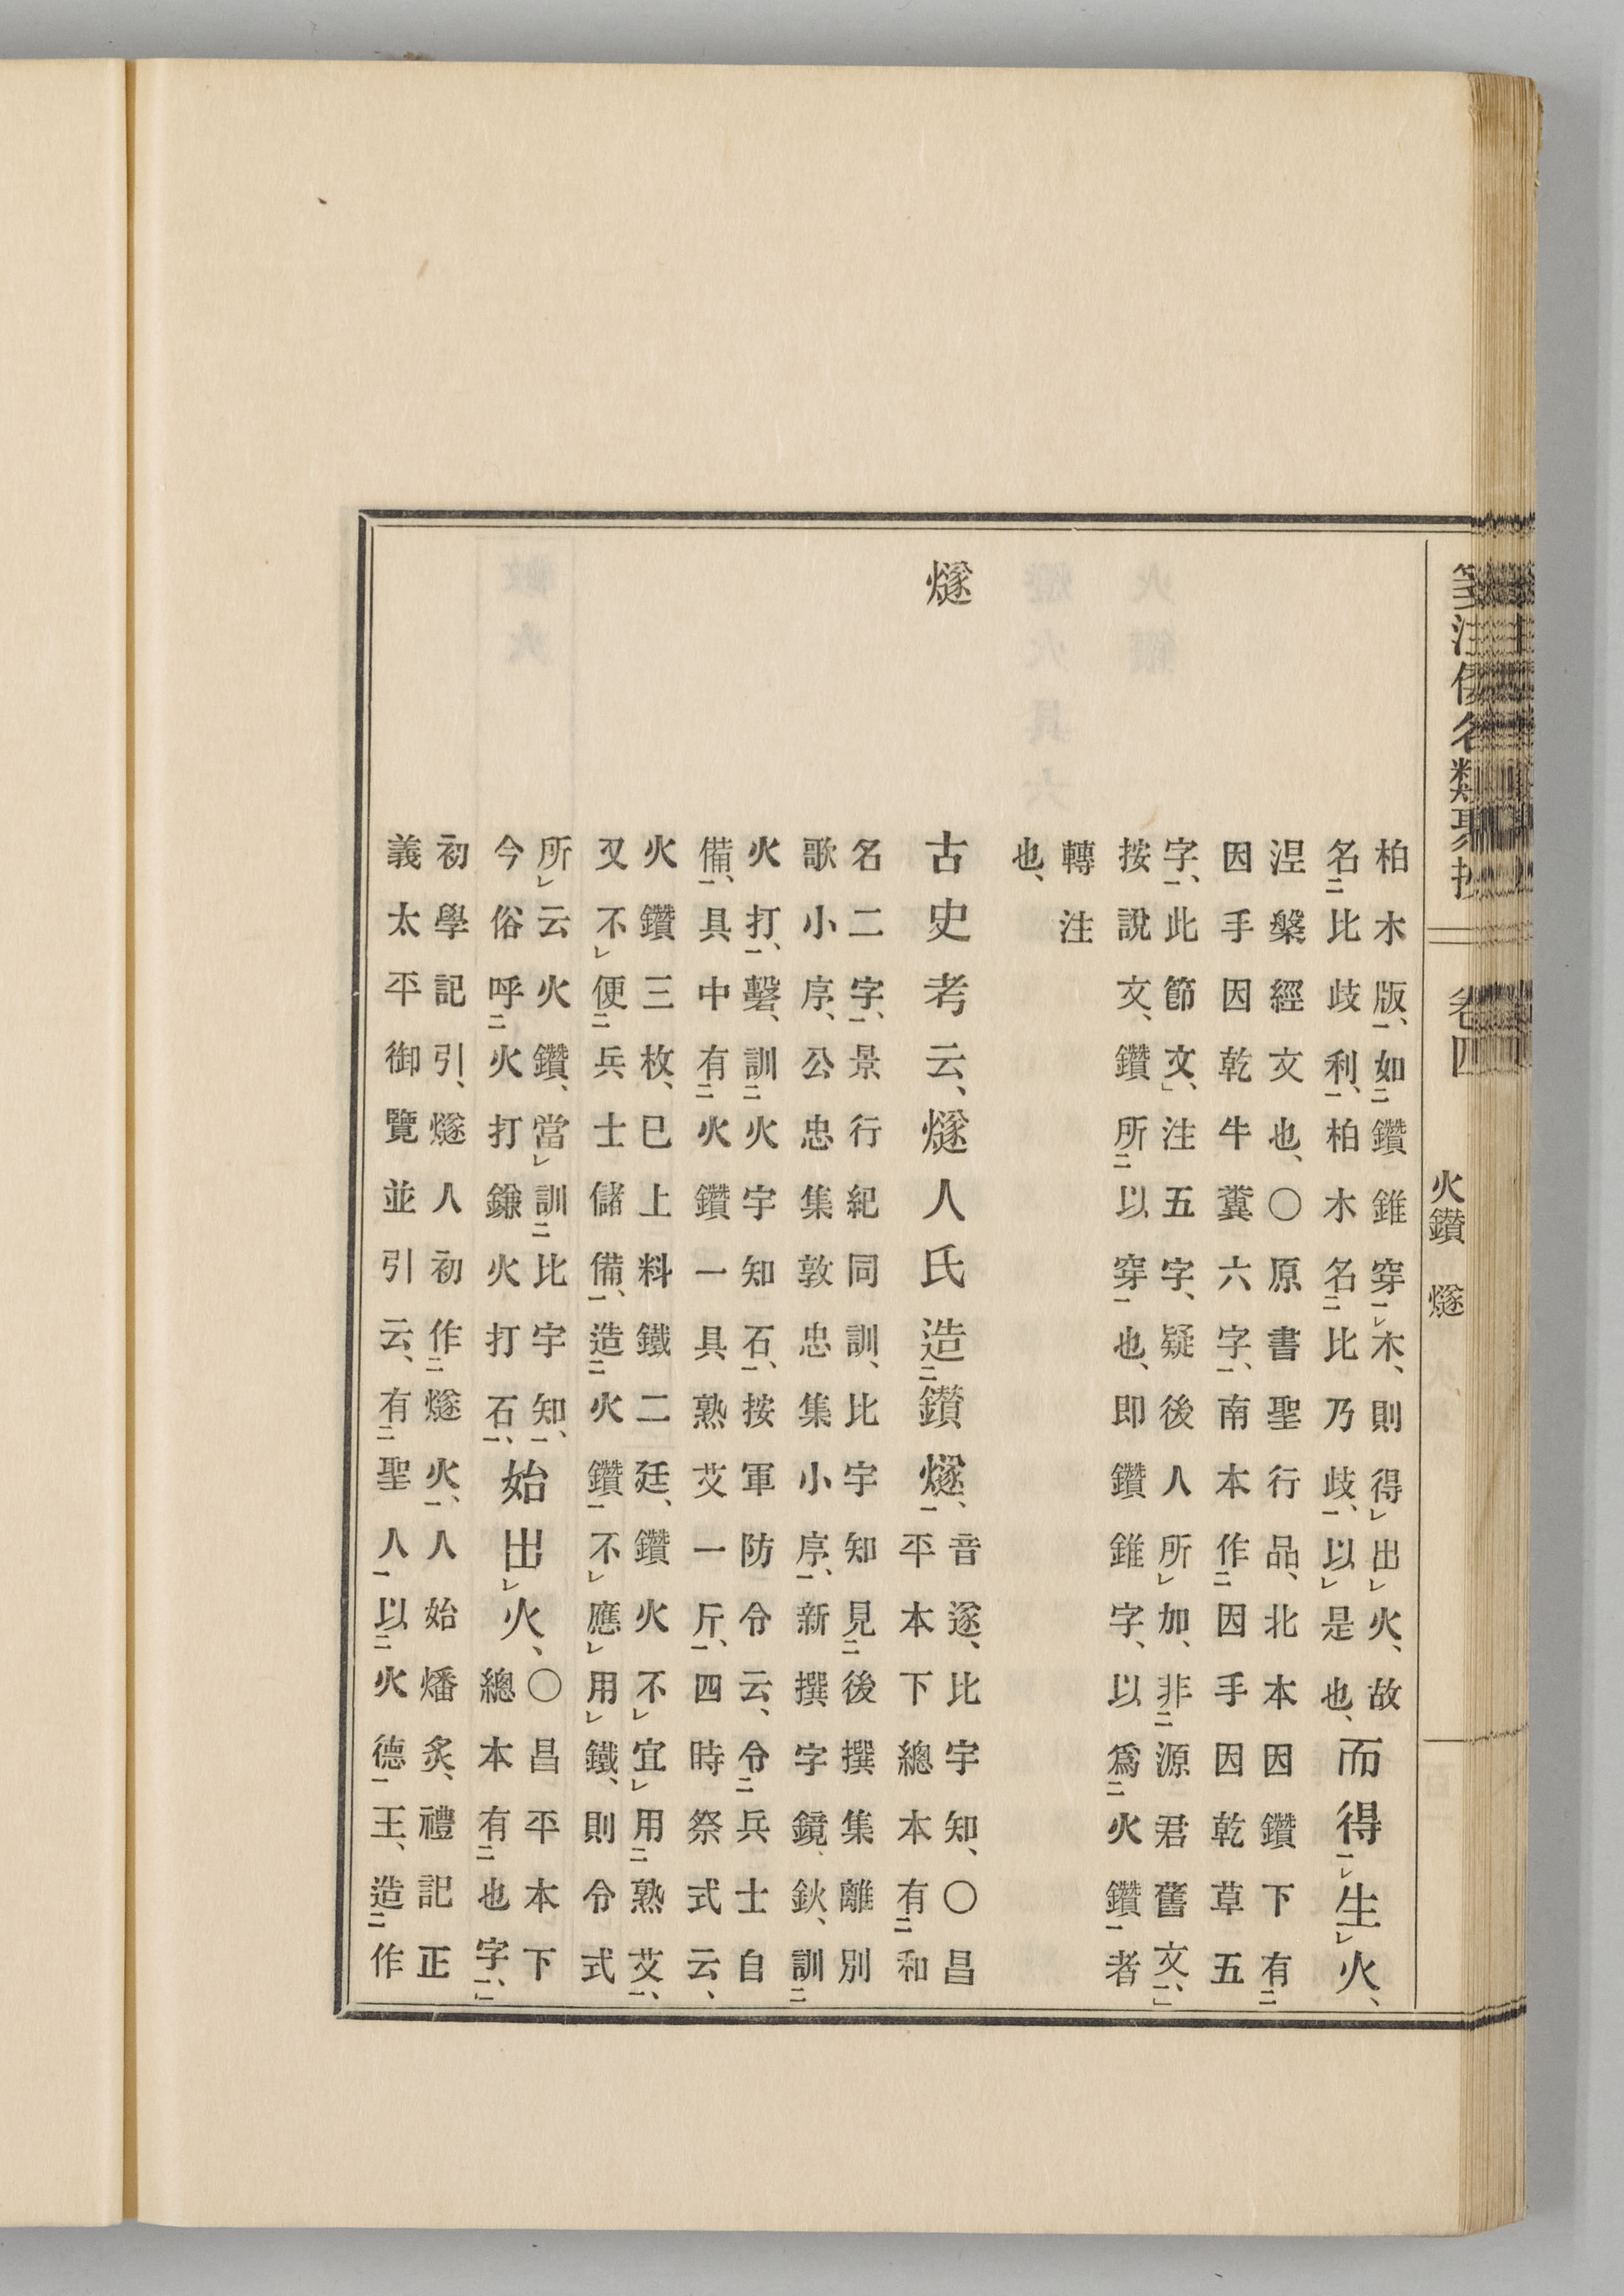 箋注倭名類聚抄 卷四 火鑽 燧
柏木版、如鑽錐穿木、則得出火、故
名比歧利、柏木名比乃歧、以是也、
而得生火、
涅槃經文也、〇原書聖行品、北本因鑽下有
因手因乾牛糞六字、南本作因手因乾草五
字、此節文、」注五字、疑後人所加、非源君舊文、」
按說文、鑽所以穿也、即鑽錐字、以爲火鑽者
轉注
也、
燧
古史考云、燧人氏造鑽燧、
音遂、比宇知、〇昌
平本下總本有和
名二字、景行紀同訓、比宇知見後撰集離別
歌小序、公忠集敦忠集小序、新撰字鏡、鈥、訓
火打、礊、訓火宇知石、按軍防令云、令兵士自
備、具中有火鑽一具熟艾一斤、四時祭式云、
火鑽三枚、已上料鐵二廷、鑽火不宜用熟艾、
又不便兵士儲備、造火鑽不應用鐵、則令式
所云火鑽、當訓比宇知、
今俗呼火打鎌火打石、
始出火、
〇昌平本下
總本有也字、」
初學記引、燧人初作燧火、人始燔炙、禮記正
義太平御覽並引云、有聖人以火德王、造作